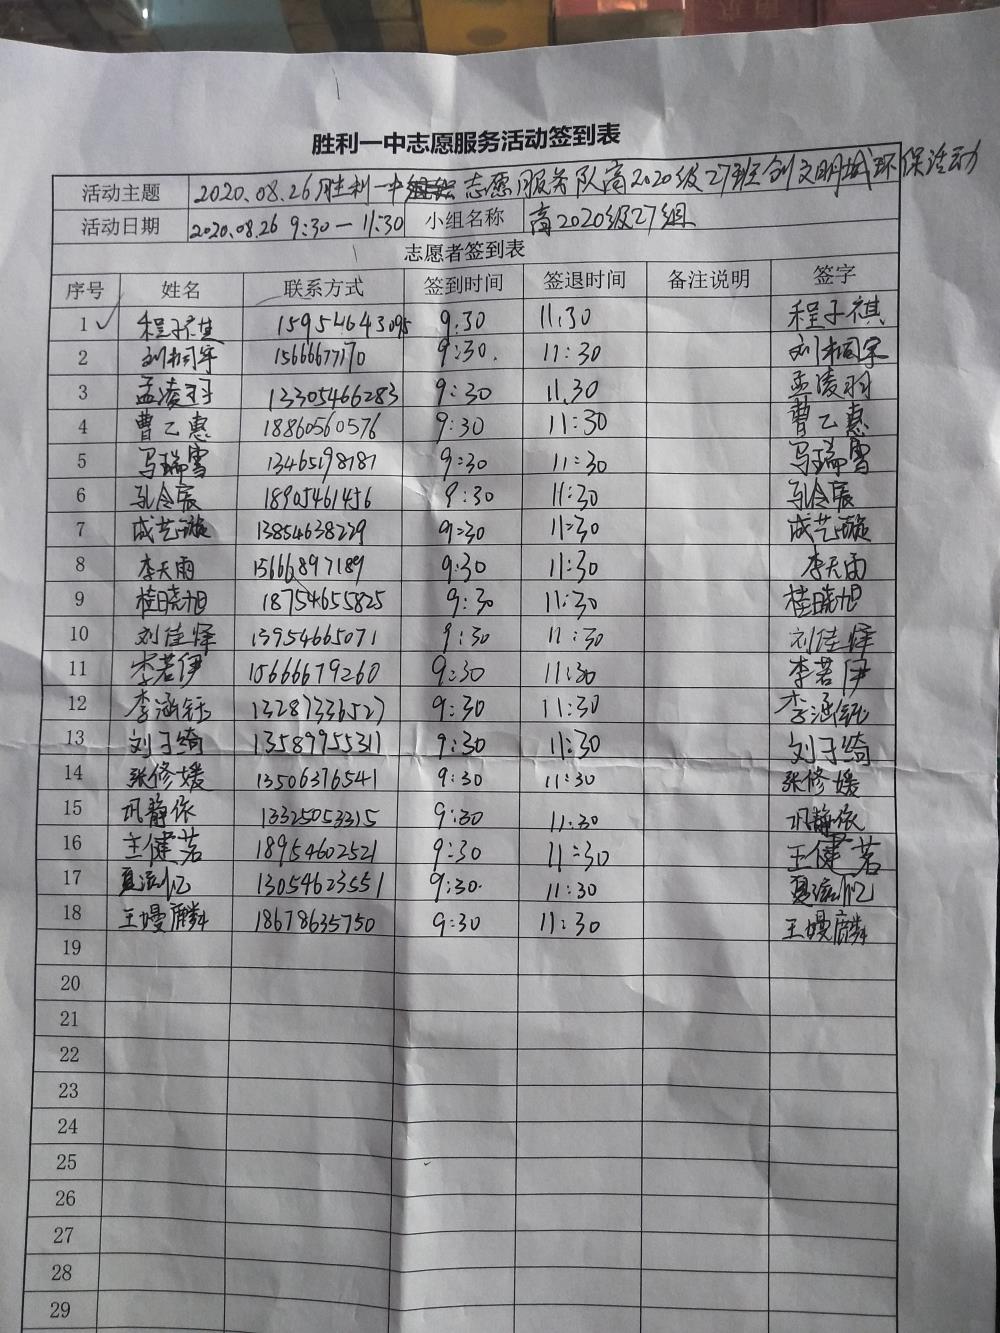 胜利一中志愿服务活动签到表
活动主题 2020.08.26胜利一中志愿服务队高2020级27班创文明城环保活动
活动日期 2020.08.26 9:30—11:30 小组名称 高2020级27组
志愿者签到表
序号 姓名 联系方式 签到时间 签退时间 备注说明 签字
1 程子祺 15954643095 9.30 11.30 程子祺
2 刘桐宇 15666677170 9:30. 11:30 刘桐宇
3 孟凌羽 13305466283 9:30 11.30 孟凌羽
4 曹乙惠 18860560576 9:30 11:30 曹乙惠
5 马瑞雪 13465198187 9:30 11:30 马瑞雪
6 孔令宸 18905461456 9:30 11:30 孔令宸
7 成艺璇 13854638229 9:30 11:30 成艺璇
8 李天雨 15666897189 9:30 11:30 李天雨
9 桂晓旭 18754655825 9:30 11:30 桂晓旭
10 刘佳烨 13954665071 9:30 11:30 刘佳烨
11 李若伊 15666679260 9:30 11:30 李若伊
12 李涵钰 13287336527 9:30 11:30 李涵钰
13 刘子绮 13589955311 9:30 11:30 刘子绮
14 张修媛 13506376541 9:30 11:30 张修媛
15 巩静依 13325053315 9:30 11:30 巩静依
16 王健茗 18954602521 9:30 11:30 王健茗
17 13054623551 9:30. 11:30
18 王嫚麟 18678635750 9:30 11:30 王嫚麟
19
20
21
22
23
24
25
26
27
28
29